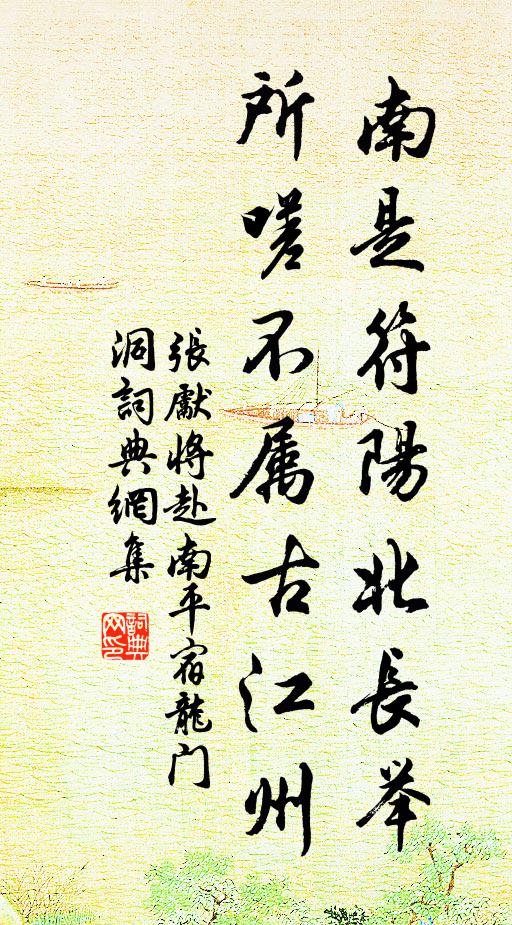 南是符陽北長举
所嗟不属古江州
張獻將赴南平宿龍门
洞詞典網集
詞典
网印